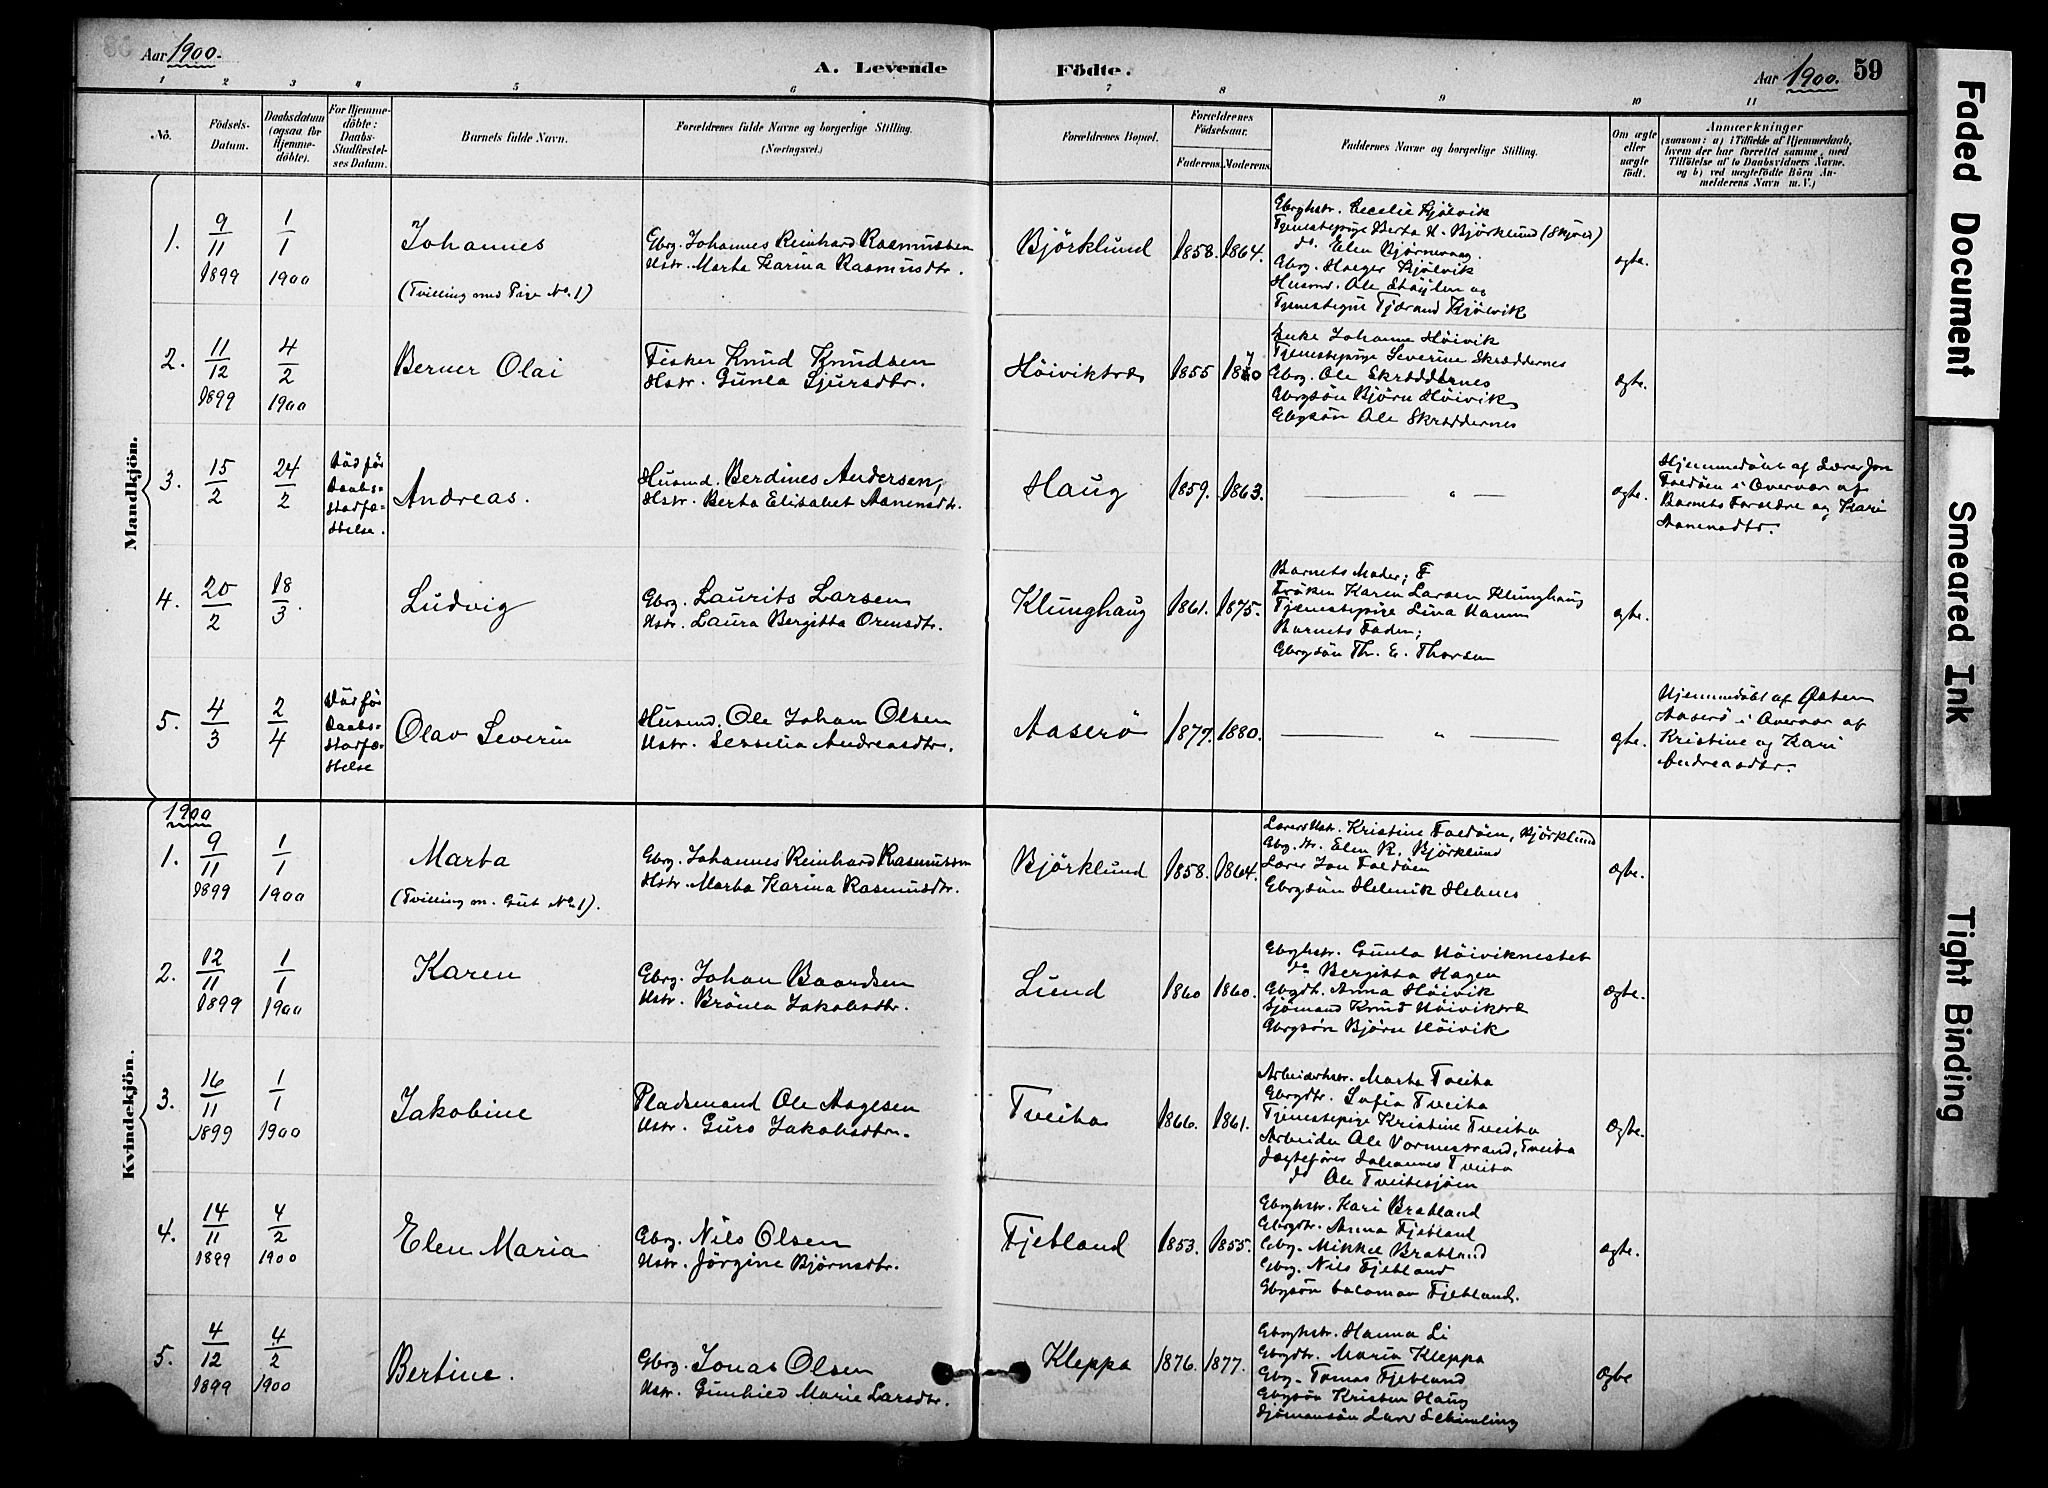 Aar 1900.
A. Levende Födte.
Aar 1900. 59
1 2 3 4 5 6 7 8 9 10 11
No.
Födsels-Datum.
Daabsdatum (ogsaa for Hjemmedöbte).
For Hjemmedöbte: Daabs-Stadfæstelses Datum.
Barnets fulde Navn.
Forældrenes fulde Navne og borgerlige Stilling. (Næringsvei.)
Forældrenes Bopæl.
Forældrenes Födselsaar.
Faderens. Moderens.
Faddernes Navne og borgerlige Stilling.
Om ægte eller uægte födt.
Anmærkninger
(saasom: a) i Tilfælde af Hjemmedaab,
hvem der har forrettet samme, med
Tilföielse af to Daabsvidners Navne.
og b) ved uægtefödte Börn Anmelderens Navn m. V.)
Mandkjön.
1. 9/11 1899 1/1 1900
Johannes
(Tvilling med Pige No. 1)
Gbrg. Johannes Reinhard Rasmussen
Hstr. Marta Karina Rasmusdtr.
Björklund 1858. 1864.
Gbrghstr. Cecelie Kjölvik
Tjenestepige Berta H. Björklund
do. Elen Björnevaag.
Gbrg. Holger Kjölvik
Husmd. Ole
Tjenestegut Tjerand Kjölvik
ægte.
2. 11/12 1899 4/2 1900
Berner Olai
Fisker Knud Knudsen
Hstr. Gunla Sjursdtr.
Höiviktræ 1855 1870
Enke Johanne Höivik
Tjenestepige Severine Skræddernes
Gbrg. Ole Skræddernes
Gbrgsön Björn Höivik
Gbgsön Ole Skræddernes
ægte.
3. 15/2 24/2
Död før Daabs-Stadfæstelse.
Andreas.
Husmd. Berdines Andersen,
Hstr. Berta Elisabet Aanensdtr.
Haug 1859. 1863. — " —
ægte.
Hjemmedöbt af Lærer Jon
Foldöen i Overvær af
Barnets Forældre og Kari
Aanensdtr.
4. 20/2 18/3.
Ludvig
Gbrg. Laurits Larsen
Hstr. Laura Bergitta Ormsdtr.
Klunghaug 1861. 1875.
Barnets Moder; F
Fröken Karen Larsen Klunghaug
Tjenestepige Lina
Barnets Fader;
Gbrgsön Th. E. Thorsen
ægte.
5. 4/3 2/4
Död før Daabs-Stadfæstelse
Olav Severin
Husmd. Ole Johan Olsen
Hstr. Sersilia Andreasdtr.
Aaserö 1877. 1880. — " —
ægte.
Hjemmedöbt af Østen
Aaserö i Overvær af
Kristine og Kari
Andreasdtr.
Kvindekjön.
1900
1. 9/11 1899 1/1 1900
Marta
(Tvilling m. Gut No. 1).
Gbrg. Johannes Reinhard Rasmussen
Hstr. Marta Karina Rasmusdtr.
Björklund 1858. 1864.
Lærerhstr. Kristine Foldöen, Björklund
Gbg.dtr. Elen R. Björklund
Lærer Jon Foldöen
Gbrgsön Helmik Helnes
ægte.
2. 12/11 1899 1/1 1900
Karen
Gbrg. Johan Baardsen
Hstr. Brönla Jakobsdtr.
Lund 1860 1860.
Gbrghstr. Gunla Höiviknestet
do. Bergitta Hagen
Gbgdtr. Anna Höivik
Sjömand Knud Höiviktræ
Gbrgsön Björn Höivik
ægte.
3. 16/11 1899 1/1 1900
Jakobine
Pladsmand Ole Aagesen
Hstr. Guro Jakobsdtr.
Tveita 1866. 1861.
Arbeiderhstr. Marta Tveita
Gbrgdtr. Sofia Tveita
Tjenestepige Kristine Tveita
Arbeider Ole Vormestrand, Tveita
Jægtefører Johannes Tveita
do Ole Tveitesjöen
ægte.
4. 14/11 1899 4/2 1900
Elen Maria
Gbrg. Nils Olsen
Hstr. Jörgine Björnsdtr.
Fjetland 1853. 1855.
Gbrghstr. Kari Bratland
Gbrgdtr. Anna Fjetland
Gbrg. Mikkel Bratland
Gbrg. Nils Fjetland
Gbgsön Salomon Fjetland.
ægte.
5. 4/12 1899 4/2 1900
Bertine.
Gbrg. Jonas Olsen
Hstr. Gunhild Marie Larsdtr.
Kleppa 1876. 1877.
Gbrghstr. Hanna Li
Gbrgdtr. Maria Kleppa
Gbg. Tomas Fjetland
Gbgsön Kristen Haug
Sjömansön Lars
ægte
Faded Document
Smeared Ink
Tight Binding